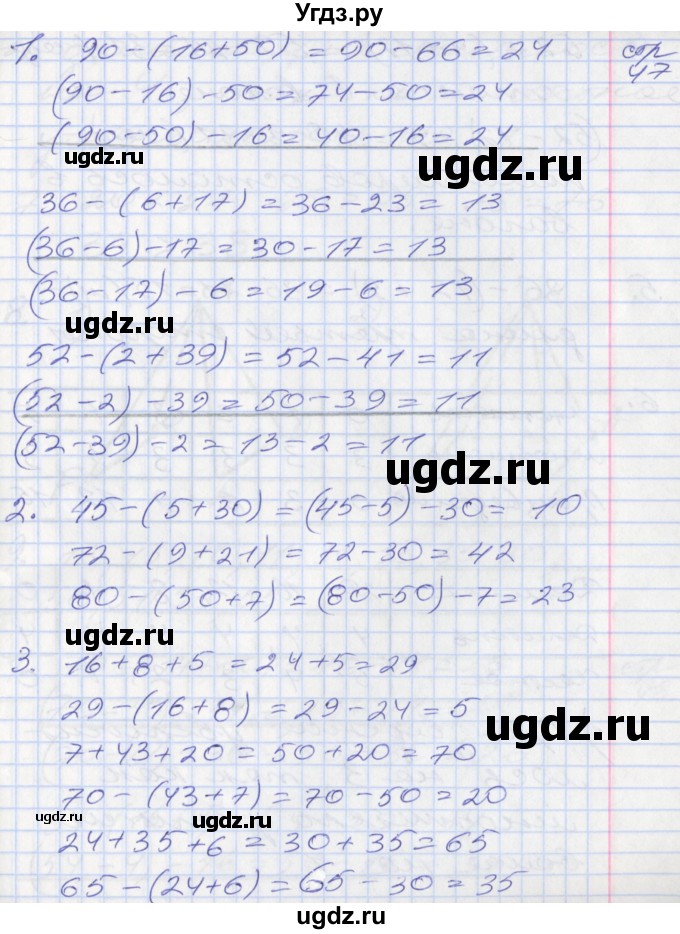 Угдз.ру
1. 90-(16+50) = 90-66=24 стр
47
(90-16)-50=74-50=24
(90-50)-16=40-16=24
ugdz.ru
ugdz.ru
36-(6+17)=36-23=13
(36-6)-17=30-17=13
(36-17)-6=19-6=13
ugdz.ru
ugdz.ru
52-(2+39)=52-41=11
(52-2)-39=50-39=11
(52-39)-2=13-2=11
ugdz.ru
ugdz.ru
2. 45-(5+30)=(45-5)-30=10
72-(9+21)=72-30=42
80-(50+7)=(80-50)-7=23
ugdz.ru
ugdz.ru
3. 16+8+5=24+5=29
29-(16+8)=29-24=5
ugdz.ru
7+43+20=50+20=70
70-(43+7)=70-50=20
ugdz.ru
ugdz.ru
24+35+6=30+35=65
65-(24+6)=65-30=35
ugdz.ru